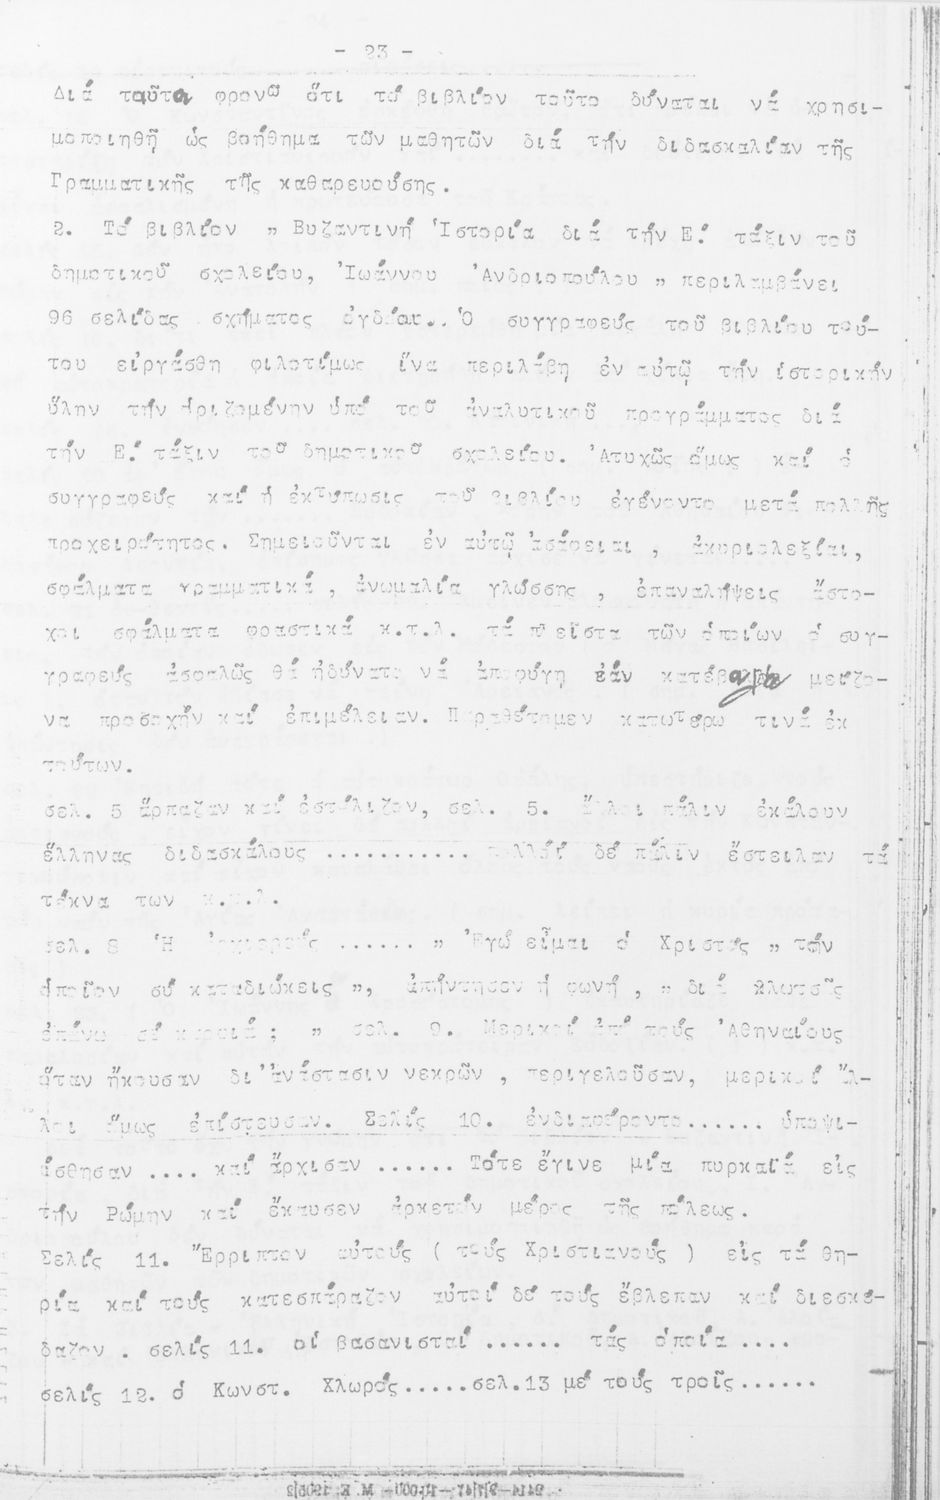 - 23 -
Διά ταῦτα φρονῶ ὅτι τό βιβλίον τοῦτο δύναται νά χρησι-
μοποιηθῇ ὡς βοήθημα τῶν μαθητῶν διά τήν διδασκαλίαν τῆς
Γραμματικῆς τῆς καθαρευούσης.
2. Τό βιβλίον „ Βυζαντινή Ἱστορία διά τήν Ε΄. τάξιν τοῦ
δημοτικοῦ σχολείου, Ἰωάννου Ἀνδριοπούλου „ περιλαμβάνει
96 σελίδας σχήματος ὀγδόου.. Ὁ συγγραφεύς τοῦ βιβλίου τού-
του εἰργάσθη φιλοτίμως ἵνα περιλάβῃ ἐν αὐτῷ τήν ἱστορικήν
ὕλην τήν ὁριζομένην ὑπό τοῦ ἀναλυτικοῦ προγράμματος διά
τήν Ε΄. τάξιν τοῦ δημοτικοῦ σχολείου. Ἀτυχῶς ὅμως καί ὁ
συγγραφεύς καί ἡ ἐκτύπωσις τοῦ βιβλίου ἐγένοντο μετά πολλῆς
προχειρότητος. Σημειοῦνται ἐν αὐτῷ ἀσάφειαι , ἀκυριολεξίαι,
σφάλματα γραμματικά , ἀνωμαλία γλώσσης , ἐπαναλήψεις ἄστο-
χοι σφάλματα φραστικά κ.τ.λ. τά πλεῖστα τῶν ὁποίων ὁ συγ-
γραφεύς ἀσφαλῶς θά ἠδύνατο νά ἀποφύγῃ ἐάν κατέβαλε μείζο-
να προσοχήν καί ἐπιμέλειαν. Παραθέτομεν κατωτέρω τινά ἐκ
τούτων.
σελ. 5 ἅρπαζαν καί ἐστόλιζον, σελ. 5. Ἄλλοι πάλιν ἐκάλουν
ἕλληνας διδασκάλους ........... πολλοί δέ πάλιν ἔστειλαν τά
τέκνα των κ.τ.λ.
σελ. 8 Ἡ ...... „ Ἐγώ εἶμαι ὁ Χριστός „ τόν
ὁποῖον σύ καταδιώκεις „, ἀπήντησεν ἡ φωνή , „ διά
ἐπάνω σέ καρφιά ; „ σελ. 9. Μερικοί ἀπό τούς Ἀθηναίους
ὅταν ἤκουσαν δι'ἀνάστασιν νεκρῶν , περιγελοῦσαν, μερικοί ἄλ-
λοι ὅμως ἐπίστευσαν. Σελίς 10. ἐνδιαφέροντο...... ὑποψι-
άσθησαν .... καί ἄρχισαν ...... Τότε ἔγινε μία πυρκαϊά εἰς
τήν Ρώμην καί ἔκαυσεν ἀρκετόν μέρος τῆς πόλεως.
Σελίς 11. Ἔρριπτον αὐτούς ( τούς Χριστιανούς ) εἰς τά θη-
ρία καί τούς κατεσπάραζον αὐτοί δέ τούς ἔβλεπαν καί διεσκέ-
δαζον . σελίς 11. οἱ βασανισταί ...... τάς ὁποία ....
σελίς 12. ὁ Κωνστ. Χλωρός.....σελ.13 μέ τούς τροῖς......